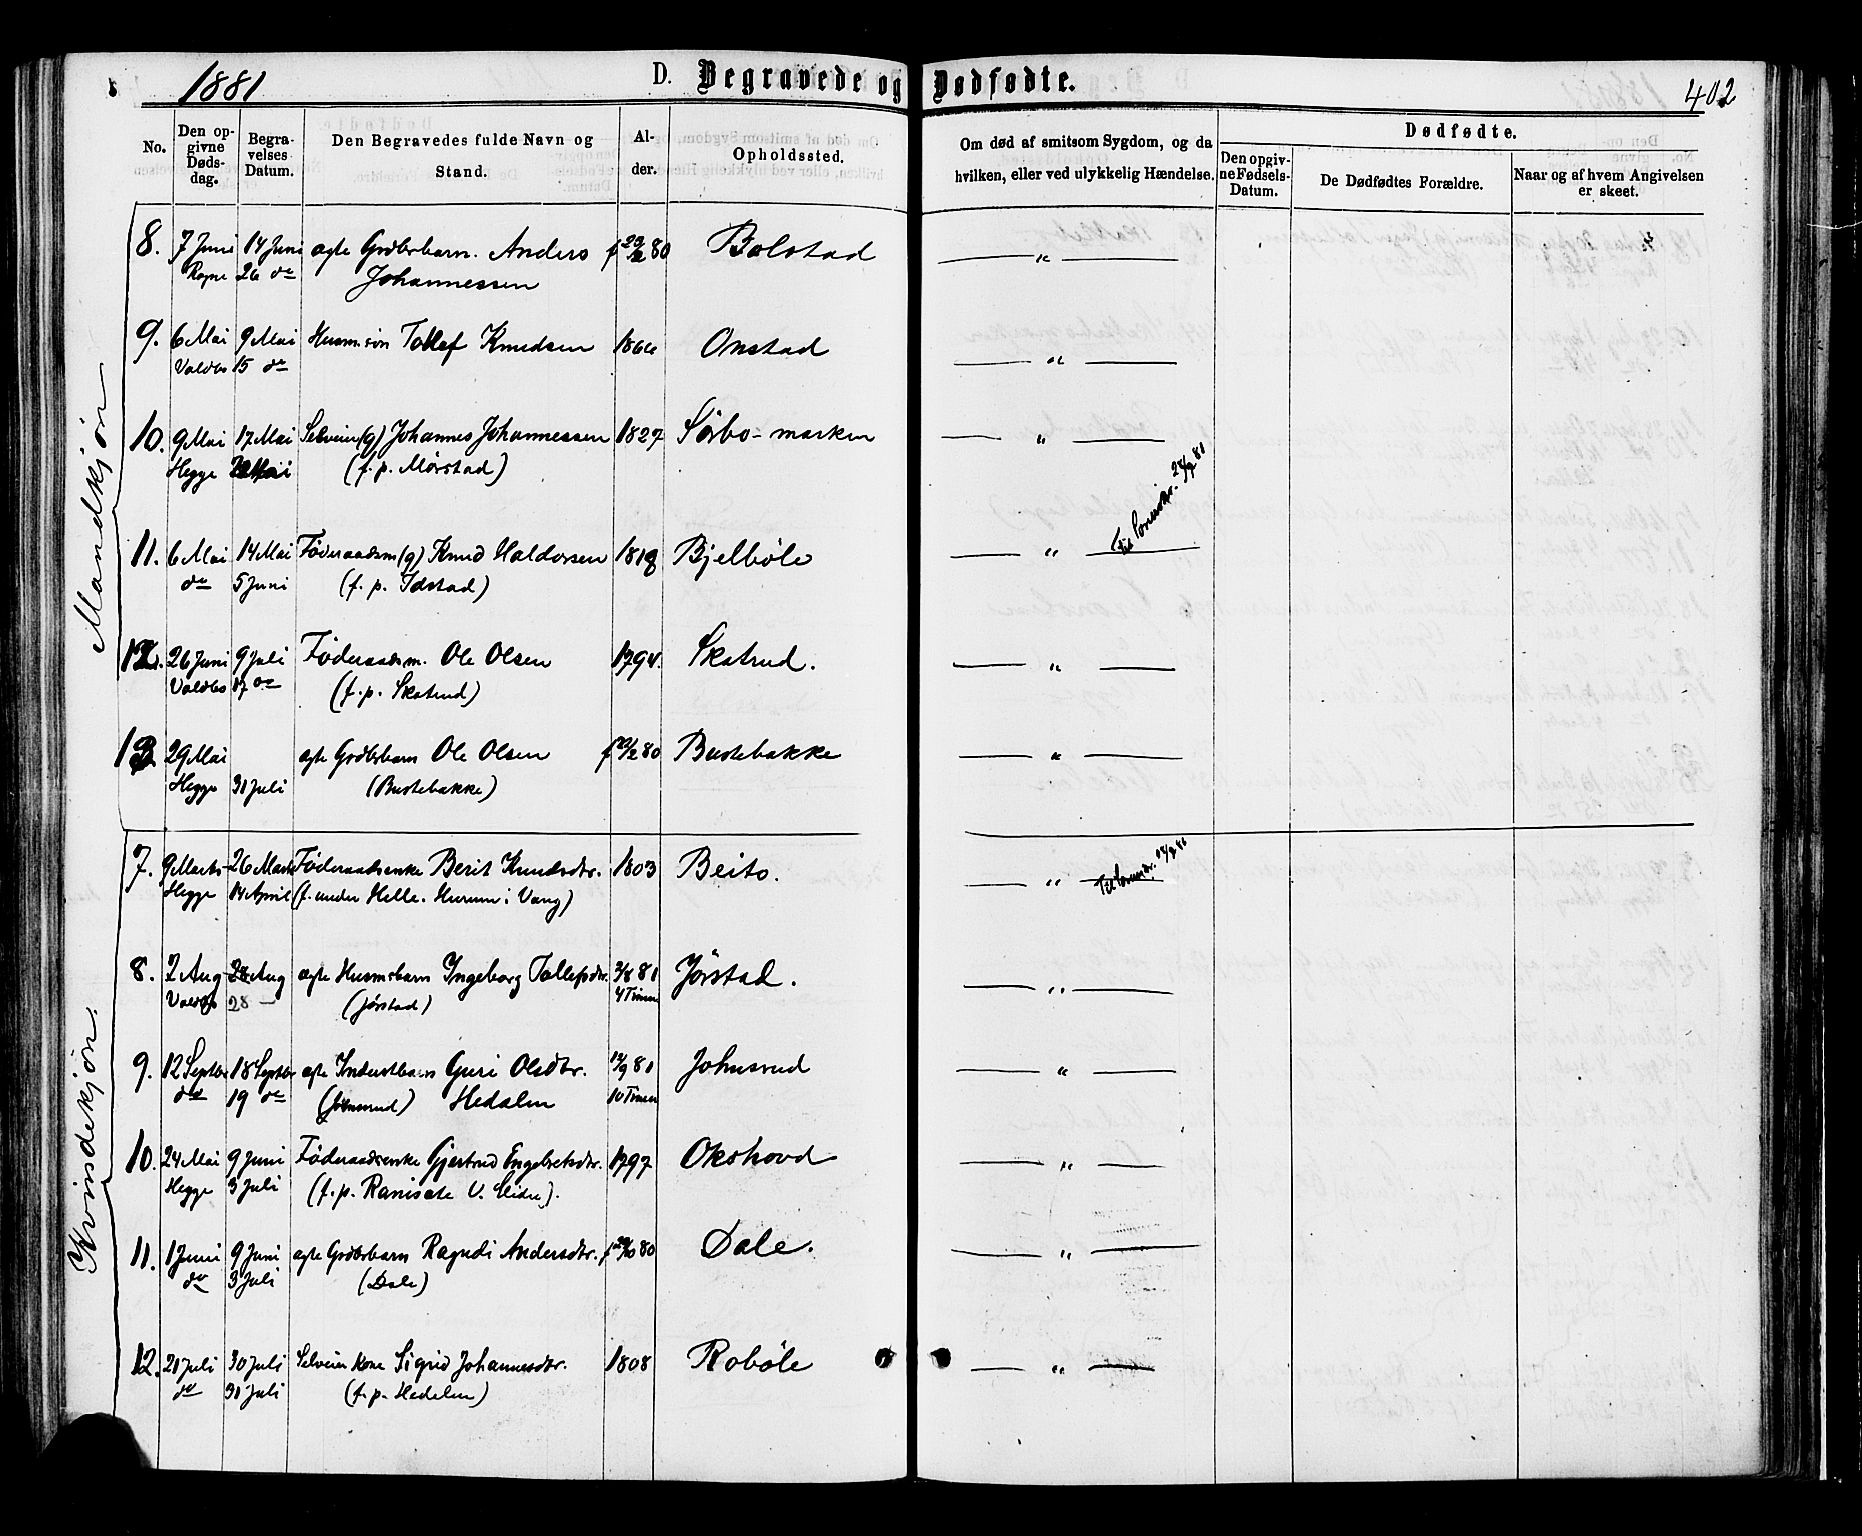 1881
D. Begravede og Dødfødte.
402
No.
Den opgivne Dødsdag.
Begravelses Datum.
Den Begravedes fulde Navn og Stand.
Alder.
Opholdssted.
Om død af smitsom Sygdom, og da hvilken, eller ved ulykkelig Hændelse.
Dødfødte.
Den opgivne Fødsels-Datum.
De Dødfødtes Forældre.
Naar og af hvem Angivelsen er skeet.
Mandkjøn
8. 7 Juni 14 Juni ægte Grdbrbarn. Anders f 80 Bolstad — " —
Rogne 26 do Johannessen
9. 6 Mai 9 Mai Husm.søn Tollef Knudsen 1864 Onstad — " —
Voldbo 15 do
10. 9 Mai 17 Mai Selveier (g) Johannes Johannessen 1827 Sørbo-marken — " —
Hegge Mai (f. p. Mørstad)
11. 6 Mai 14 Mai Føderaadsm (g) Knud Haldorsen 1818 Bjelbøle — " — Til
do 5 Juni (f. p. Idstad)
12. 26 Juni 9 Juli Føderaadsm. Ole Olsen 1794. Skatrud. — " —
Voldbo 17 do (f. p. Skatrud)
13 29 Mai ægte Grdbrbarn Ole Olsen f 80 Bustebakke — " —
Hegge 31 Juli (Bustebakke)
Kvindekjøn.
7. 9 Marts 26 Marts Føderaadsenke Berit Knudsdtr. 1803 Beito. — " — Til
Hegge 14 April (f. under Helle. Hurum i Vang)
8. 2 Aug Aug ægte Husmsbarn Ingeborg Tollefsdtr. 2/8 81 Jørstad. — " —
Voldbo 28 — (Jørstad) 4 Timer
9. 12 Septbr 18 Septbr ægte Inderstbarn Guri Olsdtr. 12/9 81 Johnsrud — " —
do 19 do (Johnsrud) Hedalen 10 Timer
10. 24 Mai 9 Juni Føderaadsenke Gjertrud Engebretsdtr. 1797 Okshovd — " —
Hegge 3 Juli (f. p. Ranisete V. Slidre).
11. 1 Juni 9 Juni ægte Grdbrbarn Ragndi Andersdtr. f 80 Dale. — " —
do 3 Juli (Dale)
12. 21 Juli 30 Juli Selveier Kone Sigrid Johannesdtr. 1808 Robøle — " —
do 31 Juli (f. p. Hedalen)